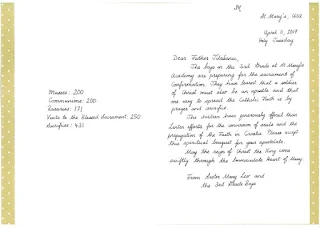 JM
St. Mary's, USA
April 11, 2017
Holy Tuesday
Dear Father
The boys in the 3rd Grade at St. Mary's
Academy are preparing for the sacrament of
Confirmation. They have learned that a soldier
of Christ must also be an apostle and that
one way to spread the Catholic Faith is by
prayer and sacrifice.
The children have generously offered their
Lenten efforts for the conversion of souls and the
propagation of the Faith in Croatia. Please accept
this spiritual bouquet for your apostolate.
May the reign of Christ the King come
swiftly through the Immaculate Heart of Mary.
From Sister Mary and
the 3rd Grade Boys
Masses: 200
Communions: 200
Rosaries: 171
Visits to the Blessed Sacrament: 250
Sacrifices: 431